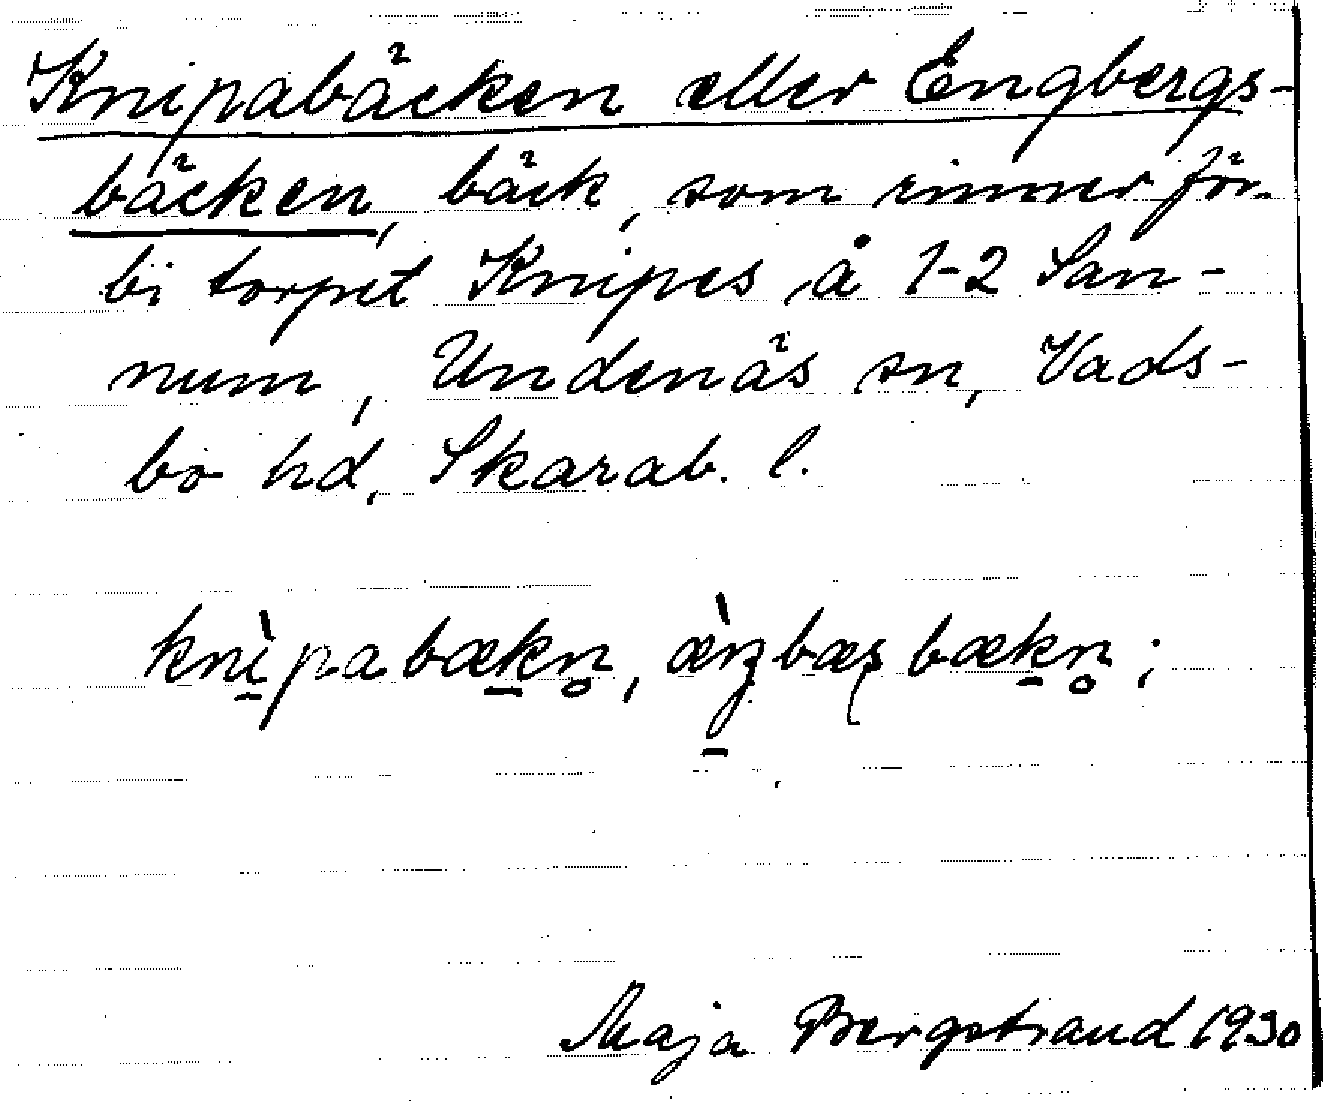 Knipabäcken eller Engbergs-
bäcken, bäck, som rinner för-
bi torpet Knipes å 1-2 San-
num, Undenäs sn, Vads-
bo hd, Skarab. l.
knì̠pabæk̠n̥, æ̀ŋ̠bæsbæk̠n̥;
Maja Bergstrand 1930